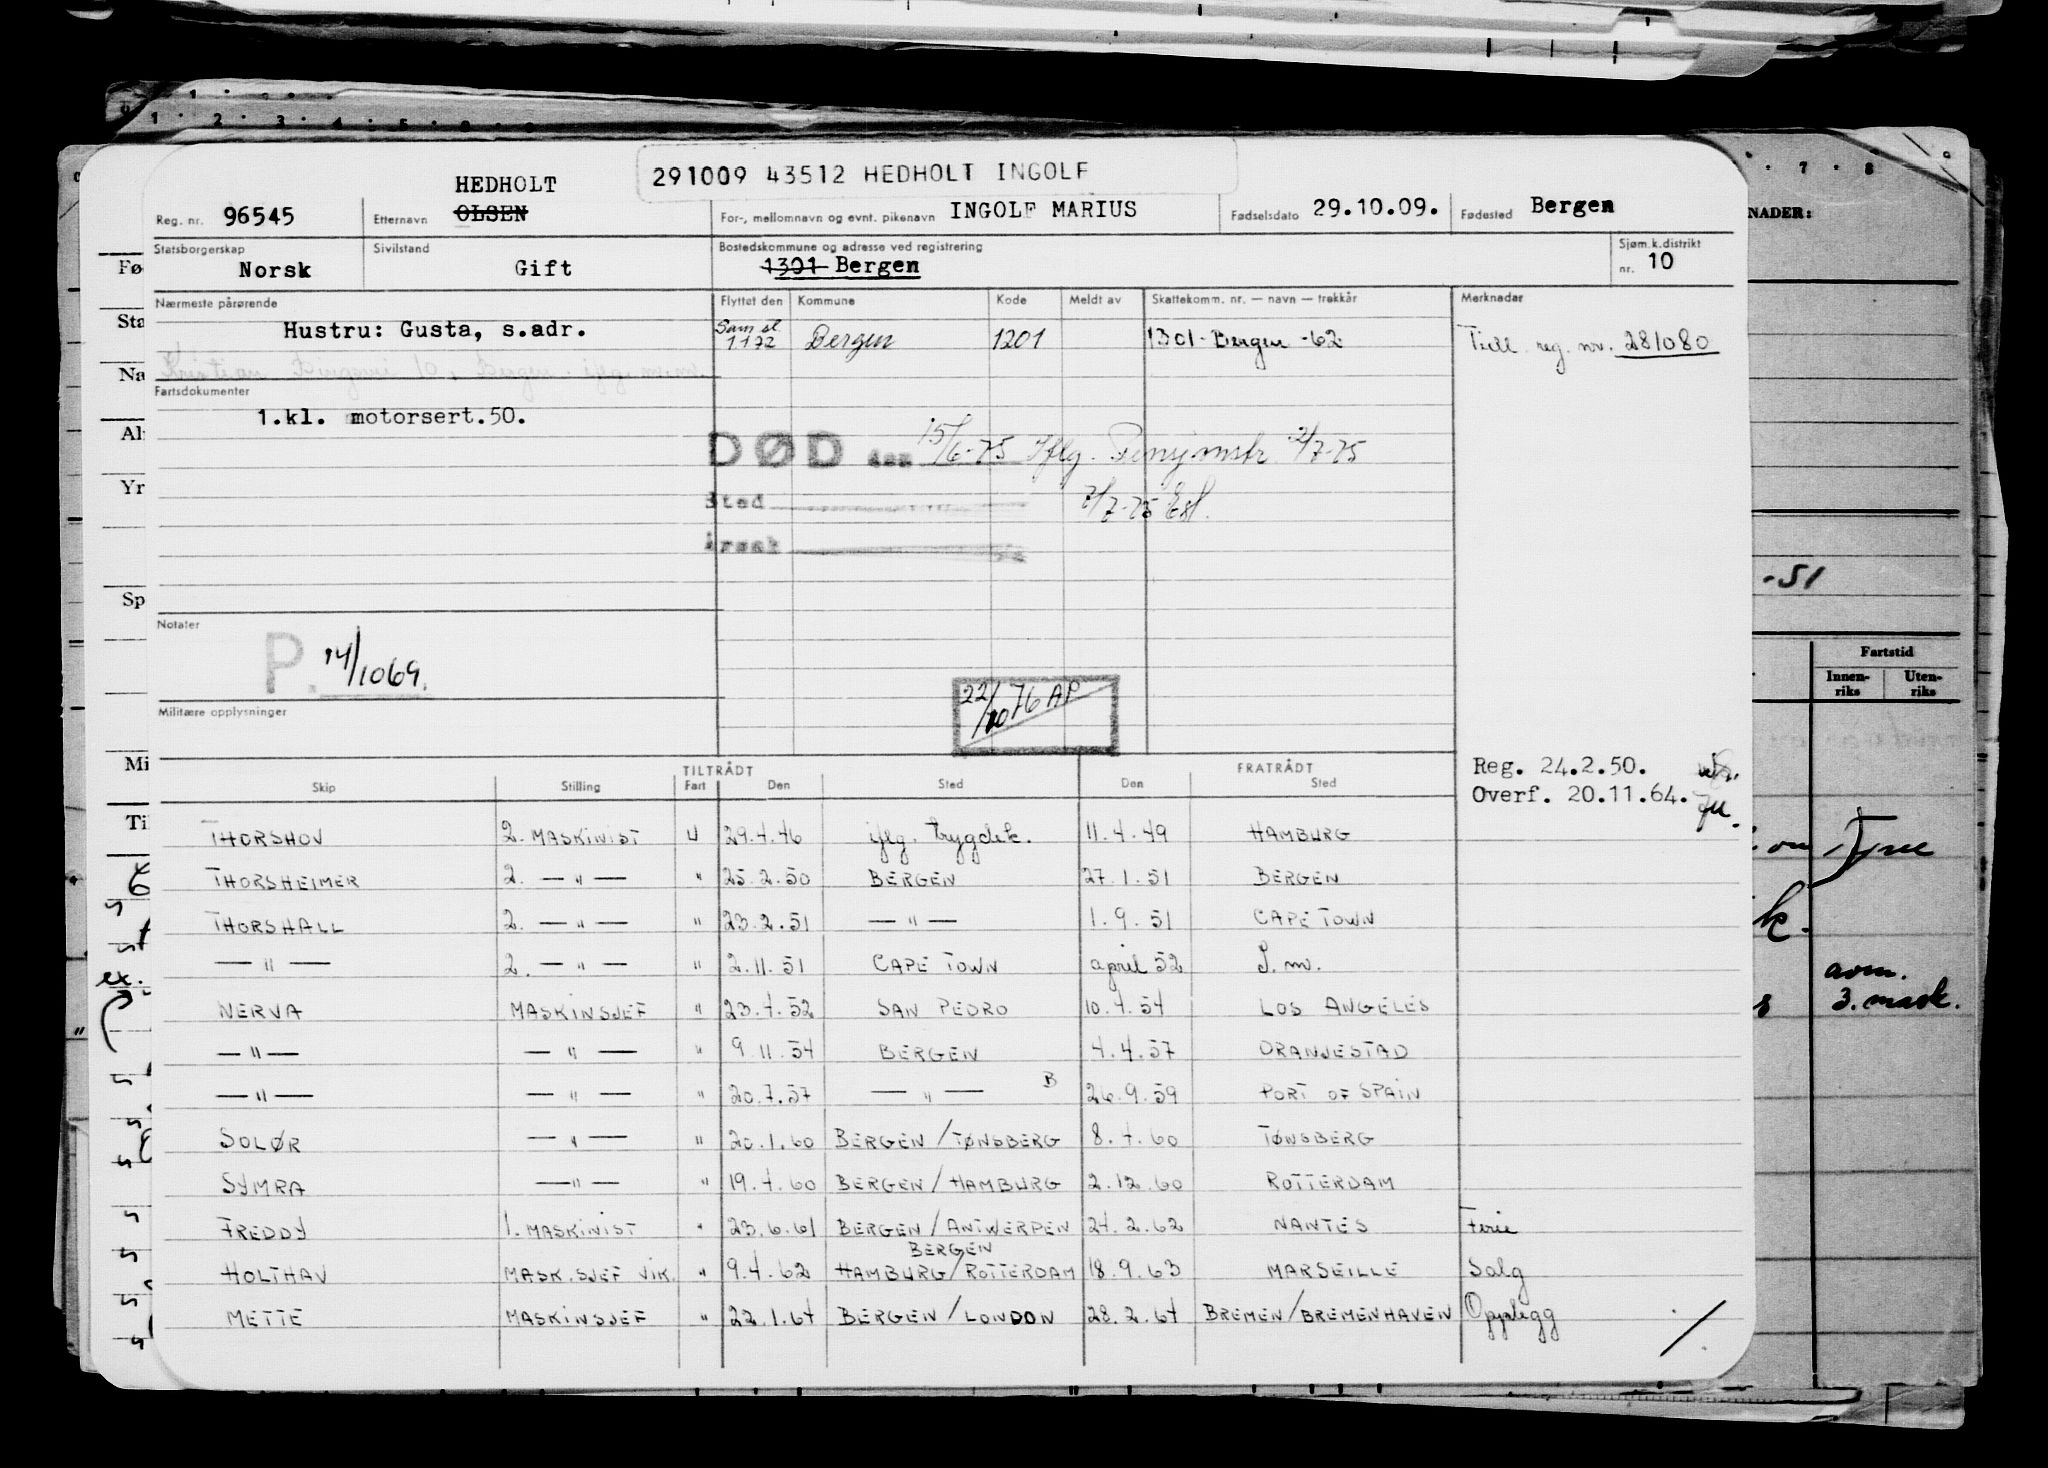 291009 43512 HEDHOLT INGOLF
HEDHOLT
Reg. nr. 96545 Etternavn OLSEN For-, mellomnavn og evnt. pikenavn INGOLF MARIUS Fødselsdato 29.10.09. Fødested Bergen
Statsborgerskap Norsk Sivilstand Gift Bostedskommune og adresse ved registrering 1301 Bergen Sjøm.k.distrikt nr. 10
Nærmeste pårørende Flyttet den Kommune Kode Meldt av Skattekomm. nr. — navn — trekkår Merknader
Hustru: Gusta, s.adr. Sam.sl. 1172 Bergen 1201 1301-Bergen -62 Tidl. reg. nr. 281080
Fartsdokumenter
1.kl. motorsert.50.
DØD den 15/6-75 Iflg. Pensjonstr 2/7-75
Sted 2/7-75
Årsak
Notater
P. 14/1069.
22/10 76 AP
Militære opplysninger
Reg. 24.2.50.
Overf. 20.11.64.
TILTRÅDT FRATRÅDT
Skip Stilling Fart Den Sted Den Sted
THORSHOV 2. MASKINIST U 29.4.46 iflg. trygdek. 11.4.49 HAMBURG
THORSHEIMER 2. — " — " 25.2.50 BERGEN 27.1.51 BERGEN
THORSHALL 2. — " — " 23.2.51 — " — 1.9.51 CAPE TOWN
— " — 2. — " — " 2.11.51 CAPE TOWN april 52 S. m.
NERVA MASKINSJEF " 23.4.52 SAN PEDRO 10.4.54 LOS ANGELES
— " — — " — " 9.11.54 BERGEN 4.4.57 ORANJESTAD
— " — — " — " 20.7.57 — " — B 26.9.59 PORT OF SPAIN
SOLØR — " — " 20.1.60 BERGEN/TØNSBERG 8.4.60 TØNSBERG
SYMRA — " — " 19.4.60 BERGEN/HAMBURG 2.12.60 ROTTERDAM
FREDDY 1. MASKINIST " 23.6.61 BERGEN/ANTWERPEN 24.2.62 NANTES Ferie
BERGEN
HOLTHAV MASK.SJEF VIK. " 9.4.62 HAMBURG/ROTTERDAM 18.9.63 MARSEILLE Salg
METTE MASKINSJEF " 22.1.64 BERGEN/LONDON 28.2.64 BREMEN/BREMENHAVEN Opplegg
NADER:
-51
Fartstid
Innen-riks Uten-riks
Tyne
avm.
3. mask.
Fø
Sta
Na
Al
Yr
Sp
Mi
Ti